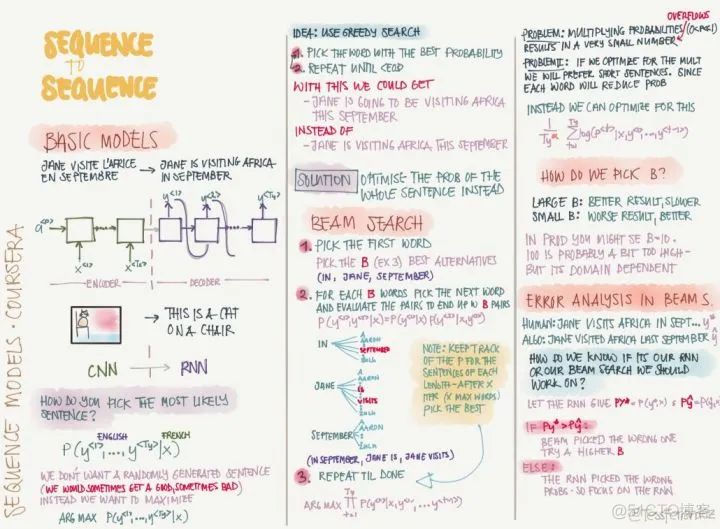 SEQUENCE
TO
SEQUENCE
BASIC MODELS
JANE VISITE L'AFRICE
EN SEPTEMBRE
JANE IS VISITING AFRICA
IN SEPTEMBER
y<1>
y<2>
y<Ty>
a<0>
x<1>
x<Tx>
ENCODER
DECODER
THIS IS A CAT
ON A CHAIR
CNN
RNN
HOW DO YOU PICK THE MOST LIKELY
SENTENCE?
ENGLISH
FRENCH
P(y<1>,...,y<Ty>|x)
WE DON'T WANT A RANDOMLY GENERATED SENTENCE
(WE WOULD SOMETIMES GET A GOOD, SOMETIMES BAD)
INSTEAD WE WANT TO MAXIMIZE
ARG MAX P(y<1>,...,y<Ty>|x)
SEQUENCE MODELS · COURSERA
IDEA: USE GREEDY SEARCH
1. PICK THE WORD WITH THE BEST PROBABILITY
2. REPEAT UNTIL <EOS>
WITH THIS WE COULD GET
- JANE IS GOING TO BE VISITING AFRICA
THIS SEPTEMBER
INSTEAD OF
- JANE IS VISITING AFRICA THIS SEPTEMBER
SOLUTION
OPTIMISE THE PROB OF THE
WHOLE SENTENCE INSTEAD
BEAM SEARCH
1. PICK THE FIRST WORD
PICK THE B (EX 3) BEST ALTERNATIVES
(IN, JANE, SEPTEMBER)
2. FOR EACH B WORDS PICK THE NEXT WORD
AND EVALUATE THE PAIRS TO END UP W B PAIRS
P(y<1>,y<2>|x)=P(y<1>|x) P(y<2>|x,y<1>)
IN
A
AARON
SEPTEMBER
ZULU
JANE
A
AARON
IS
VISITS
ZULU
SEPTEMBER
A
AARON
ZULU
(IN SEPTEMBER, JANE IS, JANE VISITS)
NOTE: KEEP TRACK
OF THE P FOR THE
SENTENCES OF EACH
LENGTH - AFTER X
ITER (X MAX WORDS)
PICK THE BEST
3. REPEAT TIL DONE
ARG MAX ∏ P(y<t>|x,y<1>,...y<t-1>)
OVERFLOWS
PROBLEM: MULTIPLYING PROBABILITIES (0<P<<1)
RESULTS IN A VERY SMALL NUMBER
PROBLEM II: IF WE OPTIMIZE FOR THE MULT
WE WILL PREFER SHORT SENTENCES. SINCE
EACH WORD WILL REDUCE PROB
INSTEAD WE CAN OPTIMIZE FOR THIS
1/Ty^α ∑ log(P<t>|x,y<1>,...,y<t-1>)
HOW DO WE PICK B?
LARGE B: BETTER RESULT, SLOWER
SMALL B: WORSE RESULT, BETTER
IN PROD YOU MIGHT SE B=10.
100 IS PROBABLY A BIT TOO HIGH-
BUT ITS DOMAIN DEPENDENT
ERROR ANALYSIS IN BEAM S.
HUMAN: JANE VISITS AFRICA IN SEPT... y*
ALGO: JANE VISITED AFRICA LAST SEPTEMBER ŷ
HOW DO WE KNOW IF ITS OUR RNN
OR OUR BEAM SEARCH WE SHOULD
WORK ON?
LET THE RNN GIVE Py*=P(y*|x) & Pŷ=P(ŷ|x)
IF Py* > Pŷ:
BEAM PICKED THE WRONG ONE
TRY A HIGHER B
ELSE:
THE RNN PICKED THE WRONG
PROBS - SO FOCUS ON THE RNN
@TessFerrandez
@51CTO博客